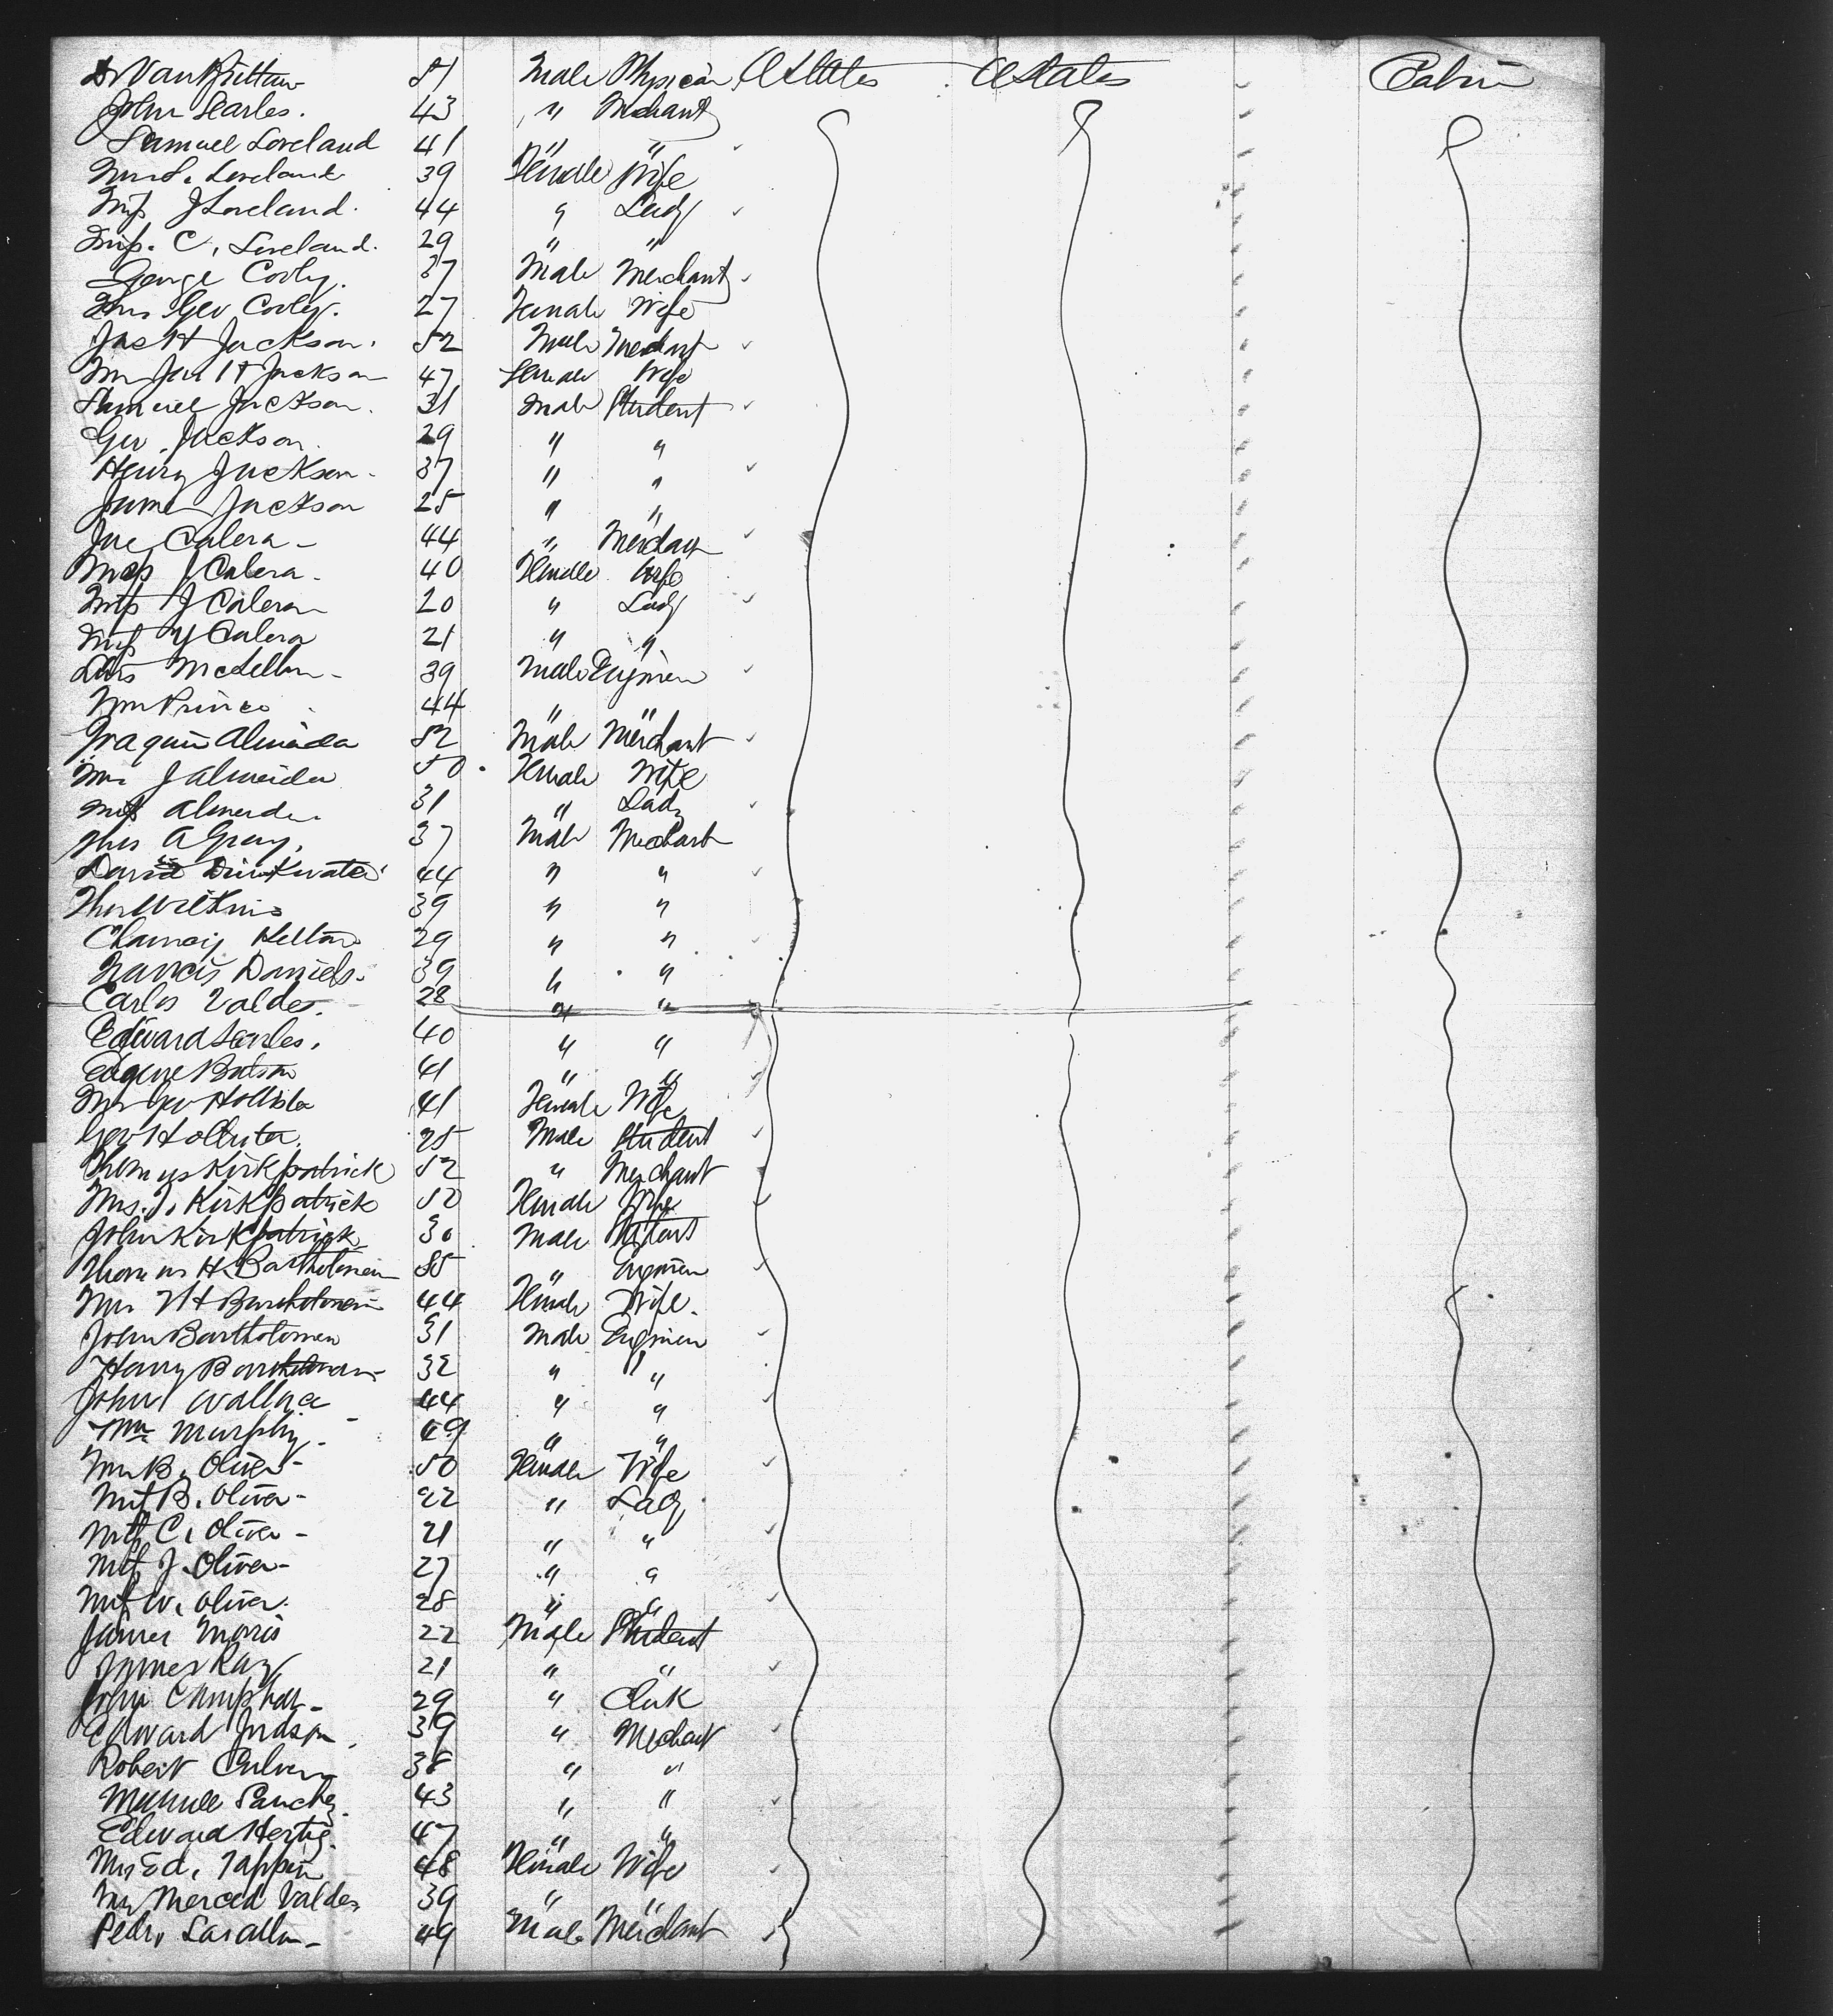 Dr Van Brittan 51 Male Physician U States U States Cabin
John Searles. 43 " Merchant
Samuel Loveland 41 " "
Mrs S. Loveland 39 Female Wife
Miss J Loveland. 44 " Lady
Miss. C. Loveland. 29 " "
George Cooley. 37 Male Merchant
Mrs Geo Cooley. 27 Female Wife
Jas H Jackson. 52 Male Merchant
Mrs Jas H Jackson 47 Female Wife
Samuel Jackson. 31 Male Student
Geo. Jackson. 29 " "
Henry Jackson. 37 " "
James Jackson 25 " "
Calera 44 " Merchant
J Calera. 40 Female Wife
Miss J Calera 20 " Lady
Miss Y Calera 21 " "
McLellan 39 Male Engineer
Wm Prince 44 " "
Joaquin Almeida 52 Male Merchant
Mrs J Almeida 50 Female Wife
Miss Almeida 31 " Lady
Thos A Gray. 37 Male Merchant
David Drinkwater 44 " "
Thos Wilkins 39 " "
Chancey Helton 29 " "
Francis Daniels. 39 " "
Carlos Valdes. 28 " "
Edward Searles. 40 " "
Eugene Batson 41 " "
Mrs Geo Hollister 41 Female Wife
Geo Hollister. 25 Male Student
Thomas Kirkpatrick 52 " Merchant
Mrs. T. Kirkpatrick 50 Female Wife
John Kirkpatrick 30 Male Student
Thomas H Bartholomew 55 " Engineer
Mrs T H Bartholomew 44 Female Wife.
John Bartholomew 31 Male Engineer
Harry Bartholomew 32 " "
John Wallace 44 " "
Wm Murphy. 49 " "
Mrs B. Oliver 50 Female Wife
Miss B. Oliver 22 " Lady
Miss C. Oliver 21 " "
Miss J. Oliver 27 " "
Miss W. Oliver. 28 " "
James Morris 22 Male Student
James Ray 21 " "
John Campbell 29 " Clerk
Edward Judson 39 " Merchant
Robert Culver 38 " "
Manuel Sanchez. 43 " "
Edward Hertig. 47 " "
Mrs Ed. Tappin 48 Female Wife
Mrs Merced Valdes 39 " "
Pedro 49 Male Merchant